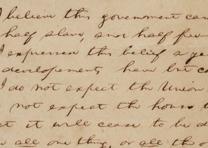 I believe this government can
half slave, and half free
I expressed this belief a ye
developements have but co
I do not expect the Union
not expect the house to
it will cease to be di
all one thing, or all the o